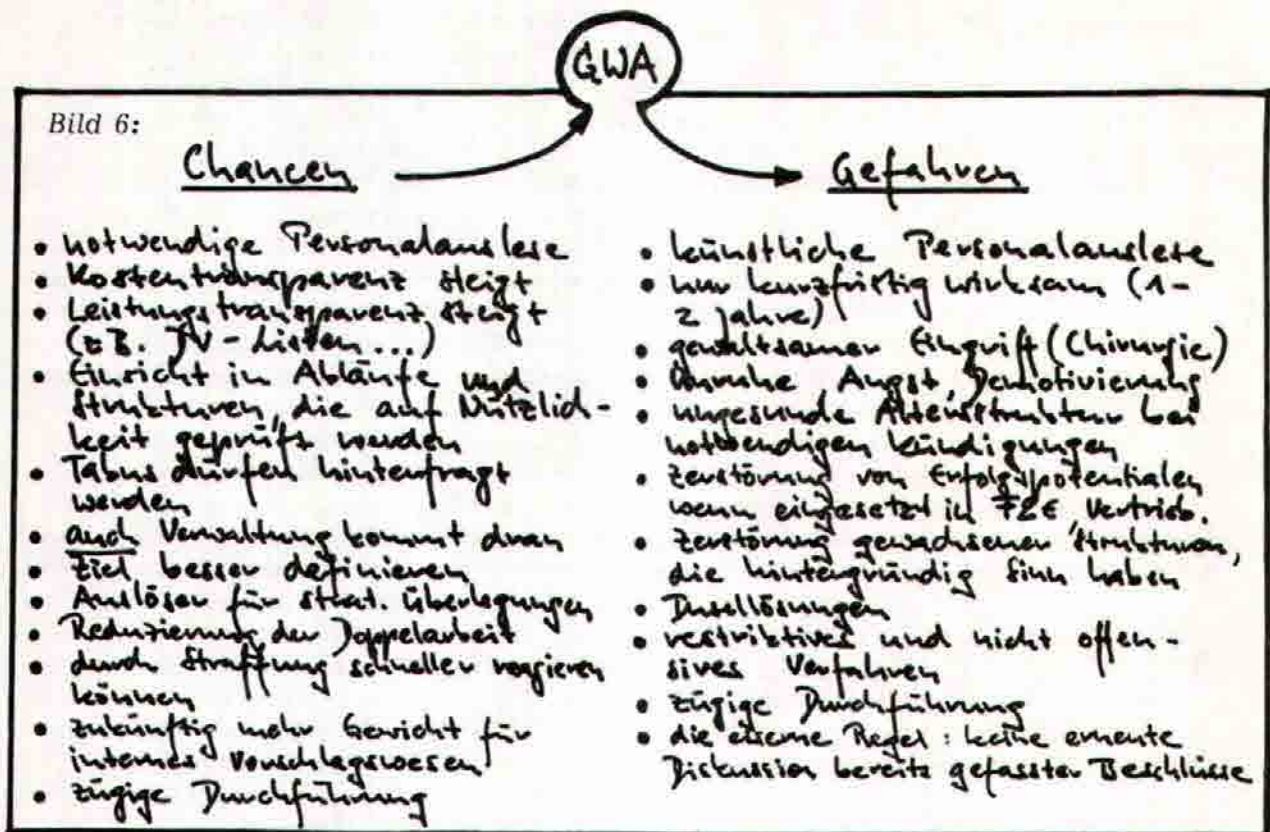 GWA
Bild 6:
Chancen
• notwendige Personalauslese
• Kostentransparenz steigt
• Leistungstransparenz steigt
(z.B. JV-Listen...)
• Einsicht in Abläufe und
Strukturen, die auf Nützlich-
keit geprüft werden
• Tabus dürfen hinterfragt
werden
• auch Verwaltung kommt dran
• Ziel besser definieren
• Auslöser für strat. Überlegungen
• Reduzierung der Doppelarbeit
• durch Straffung schneller reagieren
können
• zukünftig mehr Gewicht für
internes Vorschlagswesen
• zügige Durchführung
Gefahren
• künstliche Personalauslese
• nur kurzfristig wirksam (1-
2 Jahre)
• gewaltsamer Eingriff (Chirurgie)
• Unruhe, Angst, Demotivierung
• ungesunde Altersstruktur bei
notwendigen Kündigungen
• Zerstörung von Erfolgspotentialen
wenn eingesetzt in F&E, Vertrieb.
• Zerstörung gewachsener Strukturen,
die hintergründig Sinn haben
• Insellösungen
• restriktives und nicht offen-
sives Verfahren
• zügige Durchführung
• die eiserne Regel: keine erneute
Diskussion bereits gefasster Beschlüsse